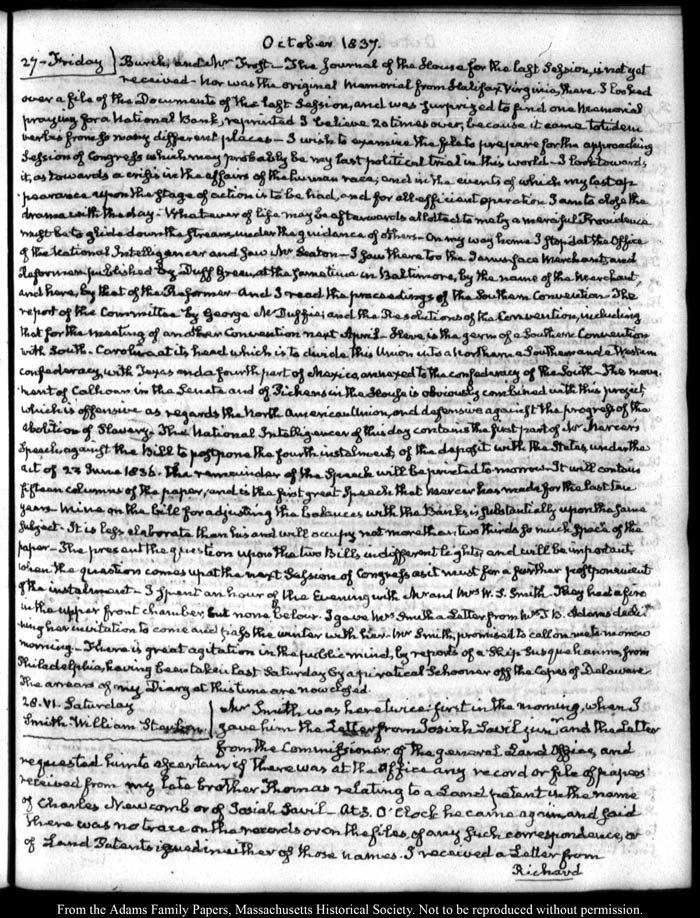 October 1837.
27-Friday Burch, and Mr Frost - The Journal of the House for the last Session, is not yet
received - Nor was the original Memorial from Halifax, Virginia, there. I looked
over a file of the Documents of the last Session, and was surprized to find one Memorial
praying for a National Bank, reprinted I believe 20 times over, because it came totidem
verbis from so many different places - I wish to examine the file to prepare for the approaching
Session of Congress which may probably be my last political trial in this world - I look towards
it, as towards a crisis in the affairs of the human race, and in the events of which my last ap-
pearance upon the stage of action is to be had, and for all efficient operation I am to close the
drama with the day - Whatever of life may be afterwards allotted to me by a merciful Providence
must be to glide down the stream, under the guidance of others - On my way home I stop'd at the Office
of the National Intelligencer and saw Mr Seaton - I saw there too the Merchant, and
Reformer published by Duff Green, at the same time in Baltimore, by the name of the Merchant,
and here, by that of the Reformer - And I read the proceedings of the Southern Convention - The
report of the Committee by George McDuffie, and the Resolutions of the Convention, including
that for the meeting of another Convention next April - Here is the germ of a Southern Convention
with South-Carolina at its head which is to divide this Union into a Northern a Southern and a Western
confederacy, with Texas and a fourth part of Mexico, annexed to the confederacy of the South - The move-
ment of Calhoun in the Senate and of Pickens in the House is obviously combined with this project,
which is offensive as regards the North American Union, and defensive against the progress of the
abolition of Slavery. The National Intelligencer of this day contains the first part of Mr Mercer's
Speech against the Bill to postpone the fourth instalment, of the deposit with the States, under the
act of 23 June 1836. The remainder of the Speech will be printed to-morrow. It will contain
fifteen columns of the paper, and is the first great Speech that Mercer has made for the last two
years - Mine on the bill for adjusting the balances with the Banks is substantially upon the same
subject - It is less elaborate than his and will occupy not more than two thirds so much space of the
paper - They present the question upon the two Bills in different lights, and will be important,
when the question comes up at the next Session of Congress as it must for a further postponement
of the instalment - I spent an hour of the Evening with Mr and Mrs W. S. Smith - They had a fire
in the upper front chamber, but none below. I gave Mrs Smith a Letter from Mrs J. B. Adams decli-
ning her invitation to come and pass the winter with her. Mr Smith, promised to call on me to-morrow
morning - There is great agitation in the public mind, by reports of a Ship Susquehanna, from
Philadelphia, having been taken last Saturday by a piratical Schooner off the Capes of Delaware.
The arrears of my Diary at this time are now closed.
28. VI. Saturday Mr Smith was here twice: first in the morning, when I
Smith William Steuben. gave him the Letter from Josiah Savil junr and the Letter
from the Commissioner of the general Land Office, and
requested him to ascertain if there was at the Office any record or file of papers
received from my late brother Thomas relating to a Land patent in the name
of Charles Newcomb or of Josiah Savil - At 3. O'Clock he came again, and said
there was no trace on the records or on the files, of any such correspondence, or
of Land Patents issued in either of those names. I received a Letter from
Richard
From the Adams Family Papers, Massachusetts Historical Society. Not to be reproduced without permission.